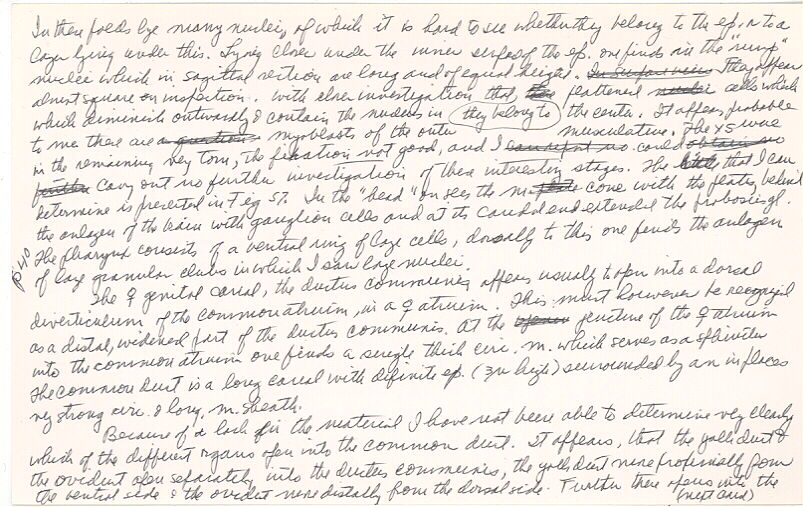 In these folds lye many nuclei, of which it is hard to see whether they belong to the ep. or to a
layer lying under this. Lying close under the inner surface of the ep. one finds in the "rump"
nuclei which in sagittal section are long and of equal height. They appear
almost square on inspection. With closer investigation that flattened cells which
which diminish outwardly & contain the nucleus in (they belong to) the center. It appears probable
to me there are myoblasts of the outer musculature. The YS were
in the remaining very torn, the fixation not good, and I could
carry out no further investigation of these interesting stages. The that I can
determine is presented in Fig 57. In the "head" one sees the cone with the behind
the anlagen of the brain with ganglion cells and at its caudal end extended the proboscis gl.
The pharynx consists of a ventral ring of large cells, dorsally to this one finds the anlagen
p. 40 of large granular clubs in which I saw large nuclei.
The ♀ genital canal, the ductus communis appears usually to open into a dorsal
diverticulum of the common atrium, in a ♀ atrium. This must however be recognized
as a distal, widened part of the ductus communis. At the juncture of the ♀ atrium
into the common atrium one finds a single thick circ. m. which serves as a sphincter
The common duct is a long canal with definite ep. (3u high) surrounded by an in places
very strong circ. & long. m. sheath.
Because of a lack in the material I have not been able to determine very clearly
which of the different organs open into the common duct. It appears, that the yolk duct &
the oviduct open separately into the ductus communis, the yolk duct more proximally from
the ventral side & the oviduct more distally from the dorsal side. Further there opens into the
(next card)